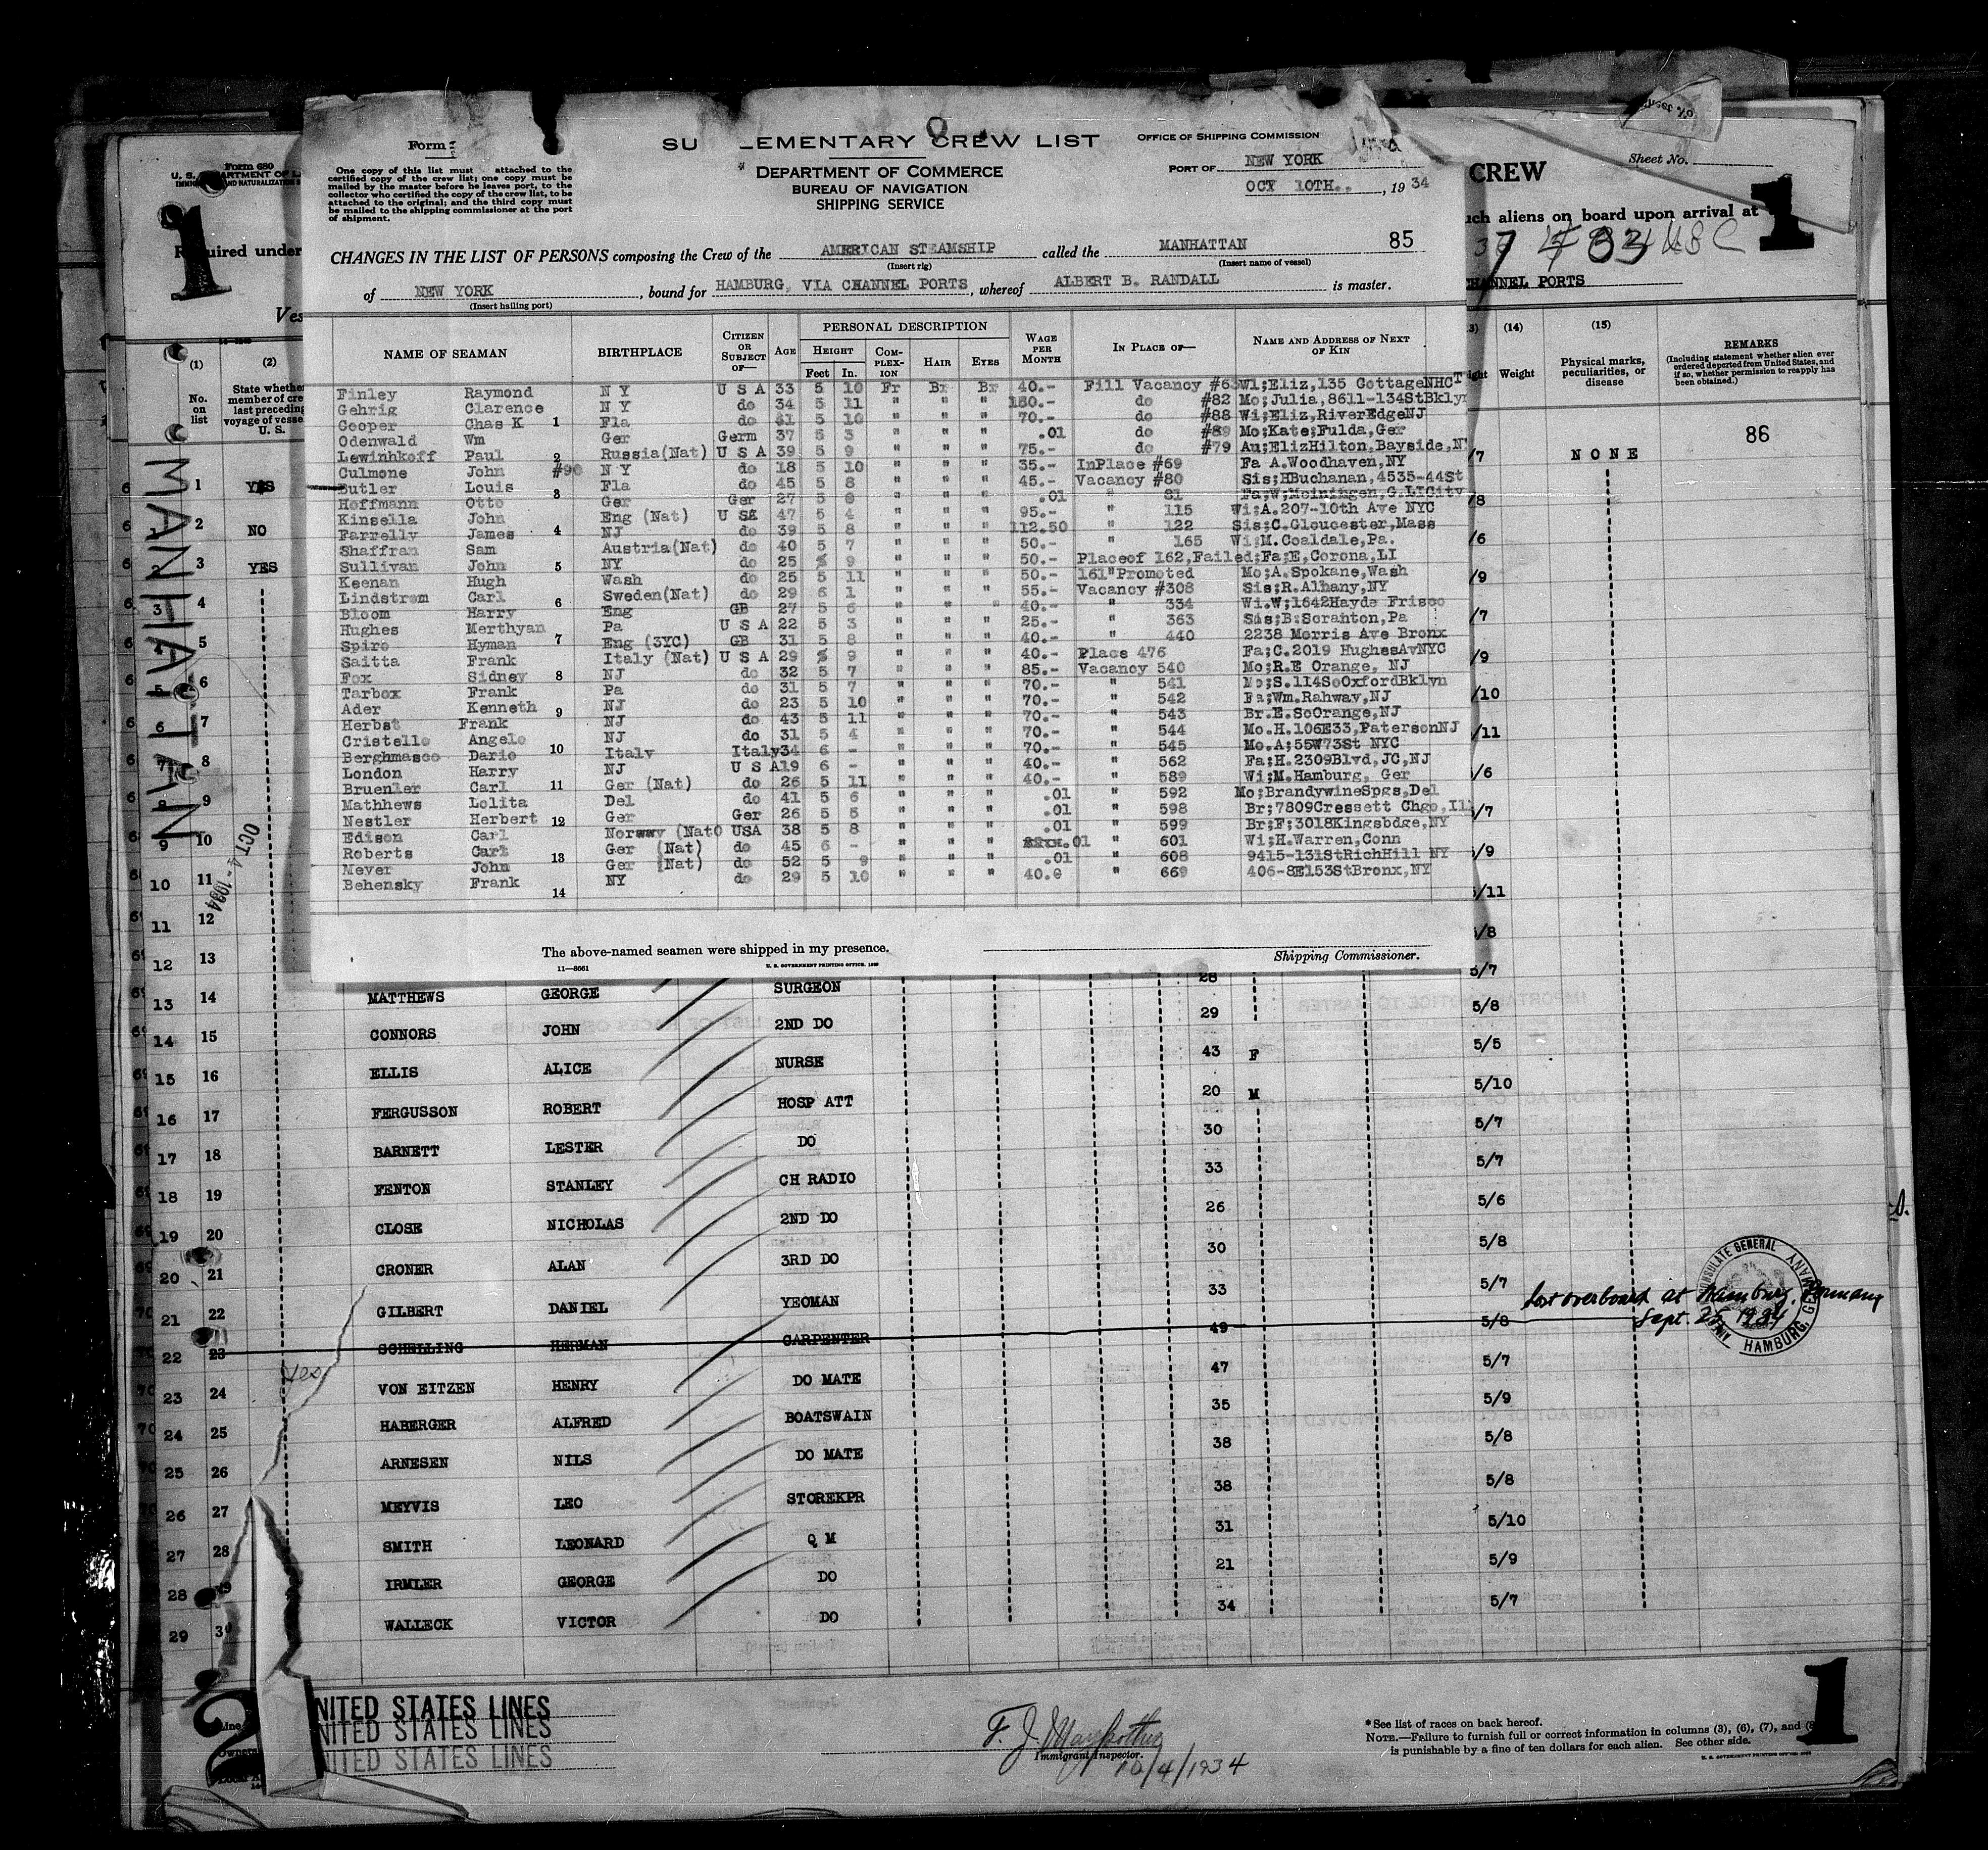 Form
SU LEMENTARY CREW LIST
OFFICE OF SHIPPING COMMISSION
One copy of this list must attached to the
certified copy of the crew list; one copy must be
mailed by the master before he leaves port, to the
collector who certified the copy of the crew list, to be
attached to the original; and the third copy must
be mailed to the shipping commissioner at the port
of shipment.
DEPARTMENT OF COMMERCE
BUREAU OF NAVIGATION
SHIPPING SERVICE
PORT OF NEW YORK
OCY 10TH.. , 19 34
CHANGES IN THE LIST OF PERSONS composing the Crew of the AMERICAN STEAMSHIP called the MANHATTAN 85
(Insert rig) (Insert name of vessel)
of NEW YORK , bound for HAMBURG, VIA CHANNEL PORTS , whereof ALBERT B. RANDALL is master.
(Insert hailing port)
NAME OF SEAMAN BIRTHPLACE CITIZEN OR SUBJECT OF— AGE PERSONAL DESCRIPTION HEIGHT Feet In. COM-PLEX-ION HAIR EYES WAGE PER MONTH IN PLACE OF— NAME AND ADDRESS OF NEXT OF KIN
Finley Raymond N Y U S A 33 5 10 Fr Br Br 40.- Fill Vacancy #6 Wi;Eliz,135 CottageNHCT
Gehrig Clarence N Y do 34 5 11 " " " 180.- do #82 Mo;Julia,8611-134StBklyn
Cooper Chas K 1 Fla do 41 5 10 " " " 70.- do #88 Wi;Eliz,RiverEdgeNJ
Odenwald Wm Ger Germ 37 5 3 " " " .01 do #89 Mo;Kate;Fulda,Ger
Lewinhkoff Paul 2 Russia(Nat) U S A 39 5 9 " " " 75.- do #79 Au;ElizHilton,Bayside,N
Culmone John #90 N Y do 18 5 10 " " " 35.- InPlace #69 Fa A.Woodhaven,NY
Butler Louis Fla do 45 5 8 " " " 45.- Vacancy #80 Sis;HBuchanan,4535-44St
Hoffmann Otto 3 Ger Ger 27 5 8 " " " .01 " 81 Fa;W;Meiningen,G.LICity
Kinsella John Eng (Nat) U SA 47 5 4 " " " 95.- " 115 Wi;A.207-10th Ave NYC
Farrelly James 4 NJ do 39 5 8 " " " 112.50 " 122 Sis;C.Gloucester,Mass
Shaffran Sam Austria(Nat) do 40 5 7 " " " 50.- " 165 Wi;M.Coaldale,Pa.
Sullivan John 5 NY do 25 5 9 " " " 50.- Placeof 162,Failed;Fa;E,Corona,LI
Keenan Hugh Wash do 25 5 11 " " " 50.- 161"Promoted Mo;A.Spokane,Wash
Lindstrom Carl 6 Sweden(Nat) do 29 6 1 " " " 55.- Vacancy #308 Sis;R.Alhany,NY
Bloom Harry Eng GB 27 5 6 " " " 40.- " 334 Wi.W;1642Hayds Frisco
Hughes Merthyan Pa U S A 22 5 3 " " " 25.- " 363 Sis;B;Scranton,Pa
Spiro Hyman 7 Eng (3YC) GB 31 5 8 " " " 40.- " 440 2238 Morris Ave Bronx
Saitta Frank Italy (Nat) U S A 29 5 9 " " " 40.- Place 476 Fa;C.2019 HughesAvNYC
Fox Sidney 8 NJ do 32 5 7 " " " 85.- Vacancy 540 Mo;R.E Orange, NJ
Tarbox Frank Pa do 31 5 7 " " " 70.- " 541 Mo;S.114SoOxfordBklyn
Ader Kenneth 9 NJ do 23 5 10 " " " 70.- " 542 Fa;Wm.Rahway,NJ
Herbst Frank NJ do 43 5 11 " " " 70.- " 543 Br.E.SoOrange,NJ
Cristello Angelo NJ do 31 5 4 " " " 70.- " 544 Mo.H.106E33,PatersonNJ
Berghmasco Dario 10 Italy Italy 34 6 - " " " 70.- " 545 Mo.A;55W73St NYC
London Harry NJ U S A 19 6 - " " " 40.- " 562 Fa;H.2309Blvd,JC,NJ
Bruenler Carl 11 Ger (Nat) do 26 5 11 " " " 40.- " 589 Wi;M.Hamburg, Ger
Mathhews Lolita Del do 41 5 6 " " " .01 " 592 Mo;BrandywineSpgs,Del
Nestler Herbert 12 Ger Ger 26 5 5 " " " .01 " 598 Br;7809Cressett Chgo,Il
Edison Carl Norway (Nat) USA 38 5 8 " " " .01 " 599 Br;F;3018Kingsbdge,NY
Roberts Carl Ger (Nat) do 45 6 - " " " .01 " 601 Wi;H.Warren,Conn
Meyer John 13 Ger (Nat) do 52 5 9 " " " .01 " 608 9415-131StRichHill NY
Behensky Frank NY do 29 5 10 " " " 40.0 " 669 406-8E153StBronx,NY
14
The above-named seamen were shipped in my presence.
Shipping Commissioner.
11—8661 U. S. GOVERNMENT PRINTING OFFICE. 1929
Form 680
1
Required under
Ves
CREW
Sheet No.
1
such aliens on board upon arrival at
CHANNEL PORTS
(1) No. on list
(2) State whether member of crew last preceding voyage of vessel U. S.
(14) Weight
(15) Physical marks, peculiarities, or disease
REMARKS
(Including statement whether alien ever ordered deported from United States, and if so, whether permission to reapply has been obtained.)
86
NONE
MANHATTAN
OCT 4 - 1934
1 YES
2 NO
3 YES
3 4
5
5 6
6 7
7 8
8 9
9 10
10 11
11 12
12 13
28
13 14 MATTHEWS GEORGE SURGEON 29 5/8
14 15 CONNORS JOHN 2ND DO 43 F 5/5
15 16 ELLIS ALICE NURSE 20 M 5/10
16 17 FERGUSSON ROBERT HOSP ATT 30 5/7
17 18 BARNETT LESTER DO 33 5/7
18 19 FENTON STANLEY CH RADIO 26 5/6
19 20 CLOSE NICHOLAS 2ND DO 30 5/8
20 21 CRONER ALAN 3RD DO 33 5/7
21 22 GILBERT DANIEL YEOMAN
22 23 SCHELLING HERMAN CARPENTER 49 5/8 Lost overboard at Hamburg, Germany Sept. 25 1934
AMERICAN CONSULATE GENERAL HAMBURG, GERMANY
yes
23 24 VON EITZEN HENRY DO MATE 47 5/7
24 25 HABERGER ALFRED BOATSWAIN 35 5/9
25 26 ARNESEN NILS DO MATE 38 5/8
26 27 MEYVIS LEO STOREKPR 38 5/8
27 28 SMITH LEONARD Q M 31 5/10
28 29 IRMLER GEORGE DO 21 5/9
29 30 WALLECK VICTOR DO 34 5/7
2
NITED STATES LINES
NITED STATES LINES
NITED STATES LINES
Immigrant Inspector.
10/4/1934
1
*See list of races on back hereof.
NOTE.—Failure to furnish full or correct information in columns (3), (6), (7), and
is punishable by a fine of ten dollars for each alien. See other side.